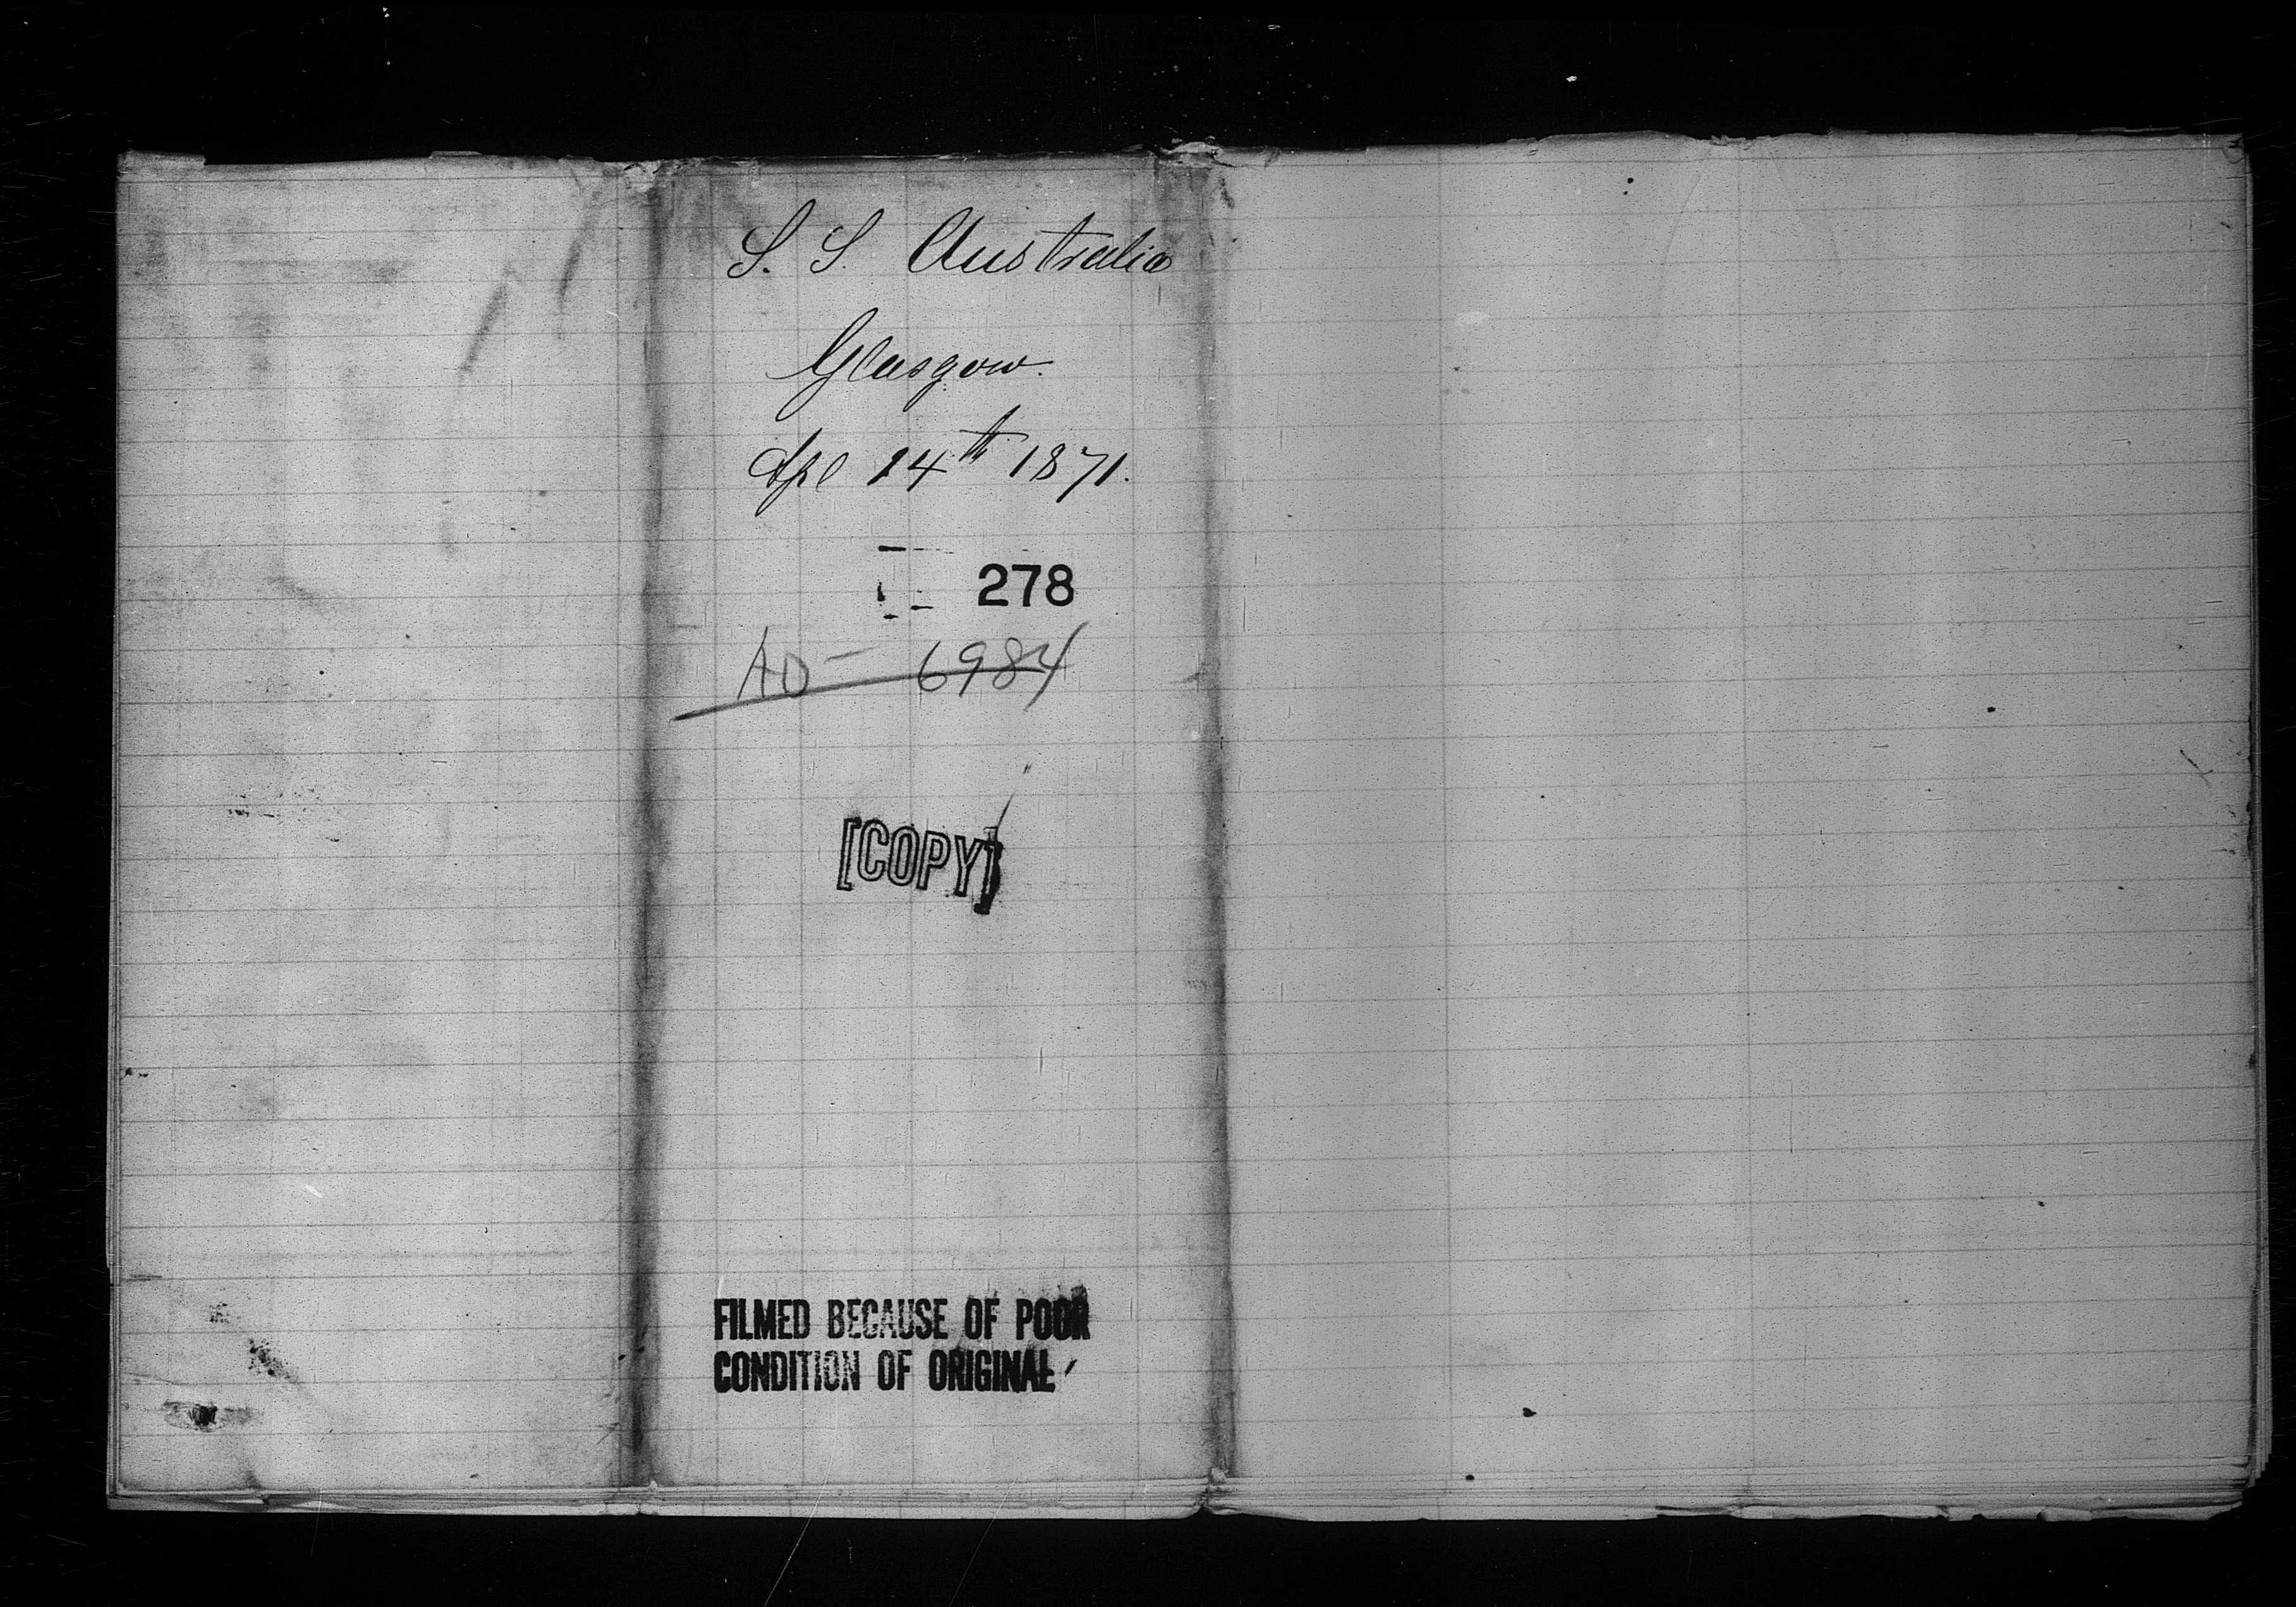 S. S. Australia
Glasgow.
Apl 14th 1871.
278
AD- 6984
[COPY]
FILMED BECAUSE OF POOR
CONDITION OF ORIGINAL